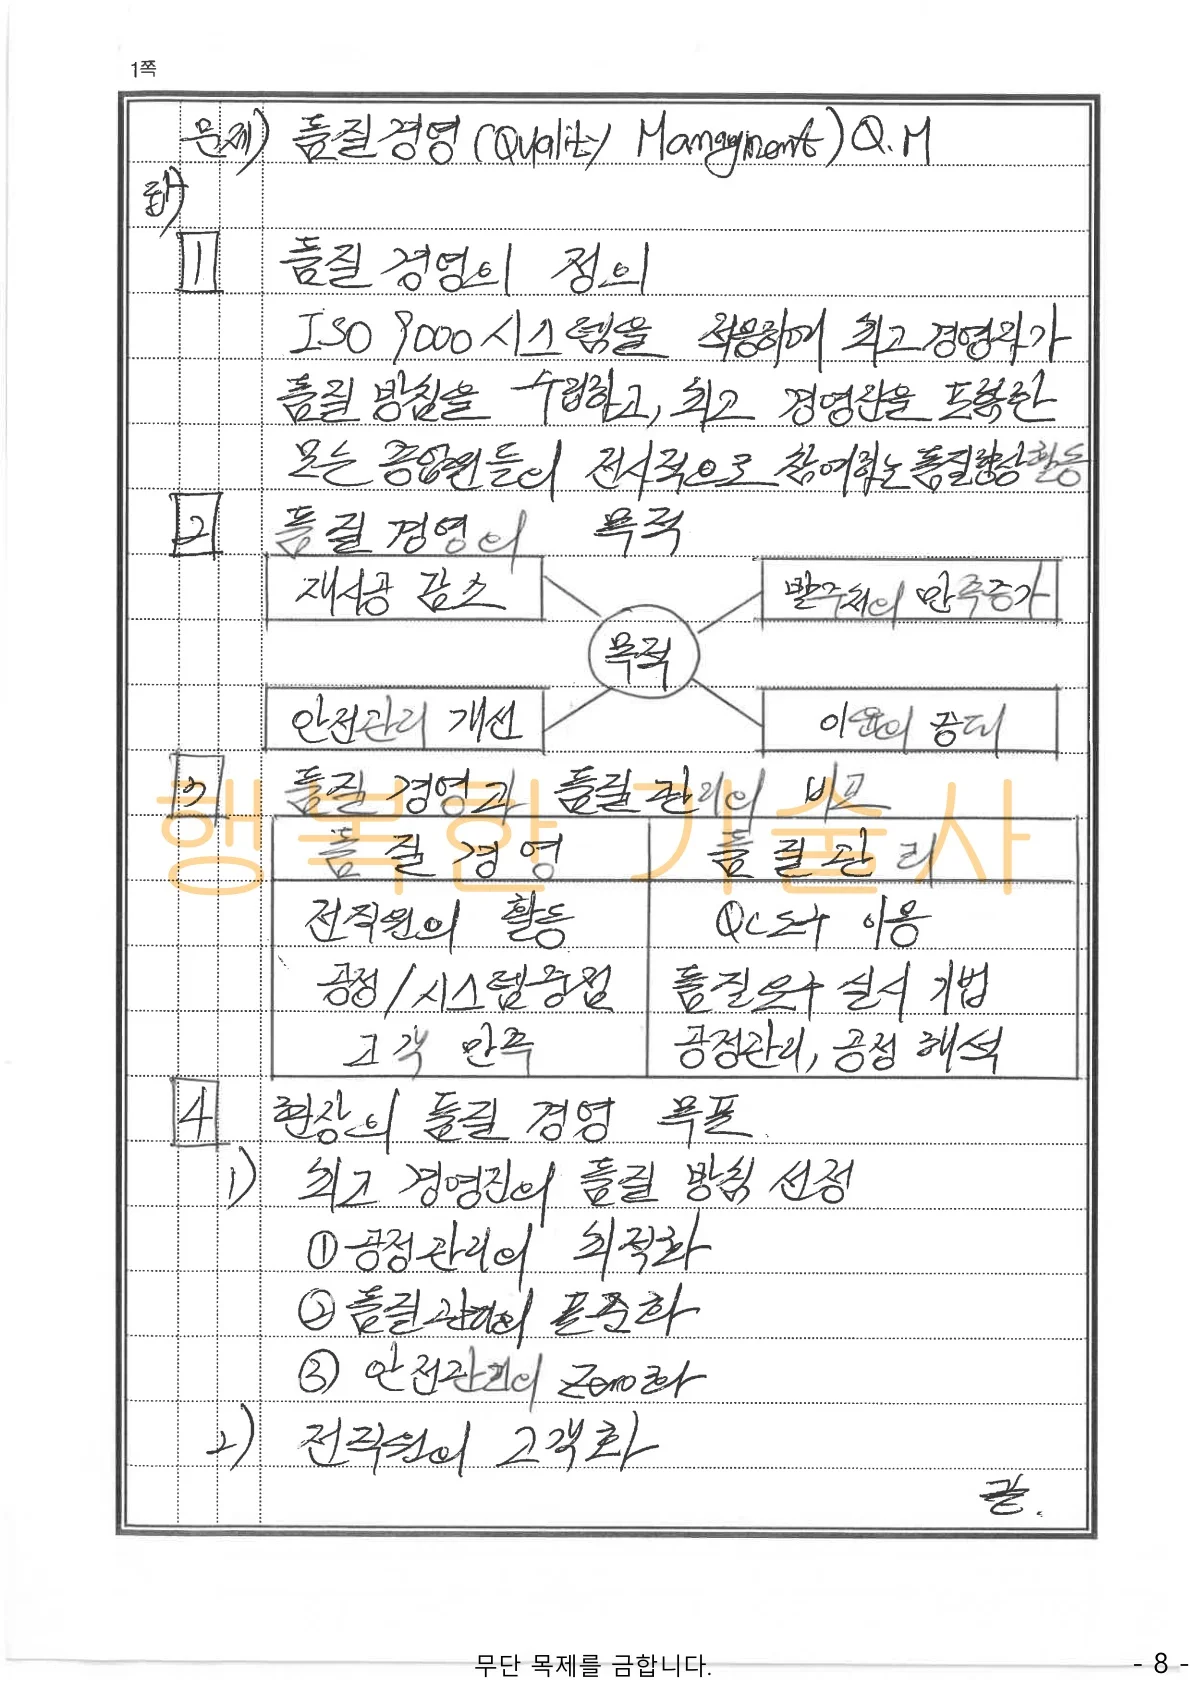 1쪽
문제) 품질경영(Quality Managment) Q.M
답)
1 품질 경영의 정의
ISO 9000 시스템을 적용하여 최고경영자가
품질 방침을 수립하고, 최고 경영진을 포함한
모든 종업원들이 전사적으로 참여하는 품질향상 활동
2 품질 경영의 목적
재시공 감소 발주처의 만족증가
목적
안전관리 개선 이윤의 증대
3 품질 경영과 품질 관리의 비교
행복한 기술사
품질경영 품질관리
전직원의 활동 QC도구 이용
공정/시스템중점 품질요구 실시 기법
고객 만족 공정관리, 공정 해석
4 현장의 품질 경영 목표
1) 최고 경영진의 품질 방침 선정
① 공정관리의 최적화
② 품질관리의 표준화
③ 안전관리의 Zero화
2) 전직원의 고객화
끝.
무단 목제를 금합니다.
- 8 -